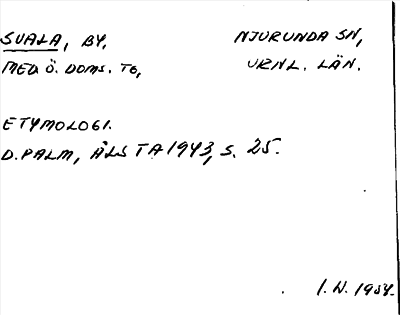 SVALA, BY, NJURUNDA SN,
MED. Ö. DOMS. TG, VRNL. LÄN.
ETYMOLOGI.
D. PALM, ÅLSTA 1943, S. 25.
I. N. 1954.